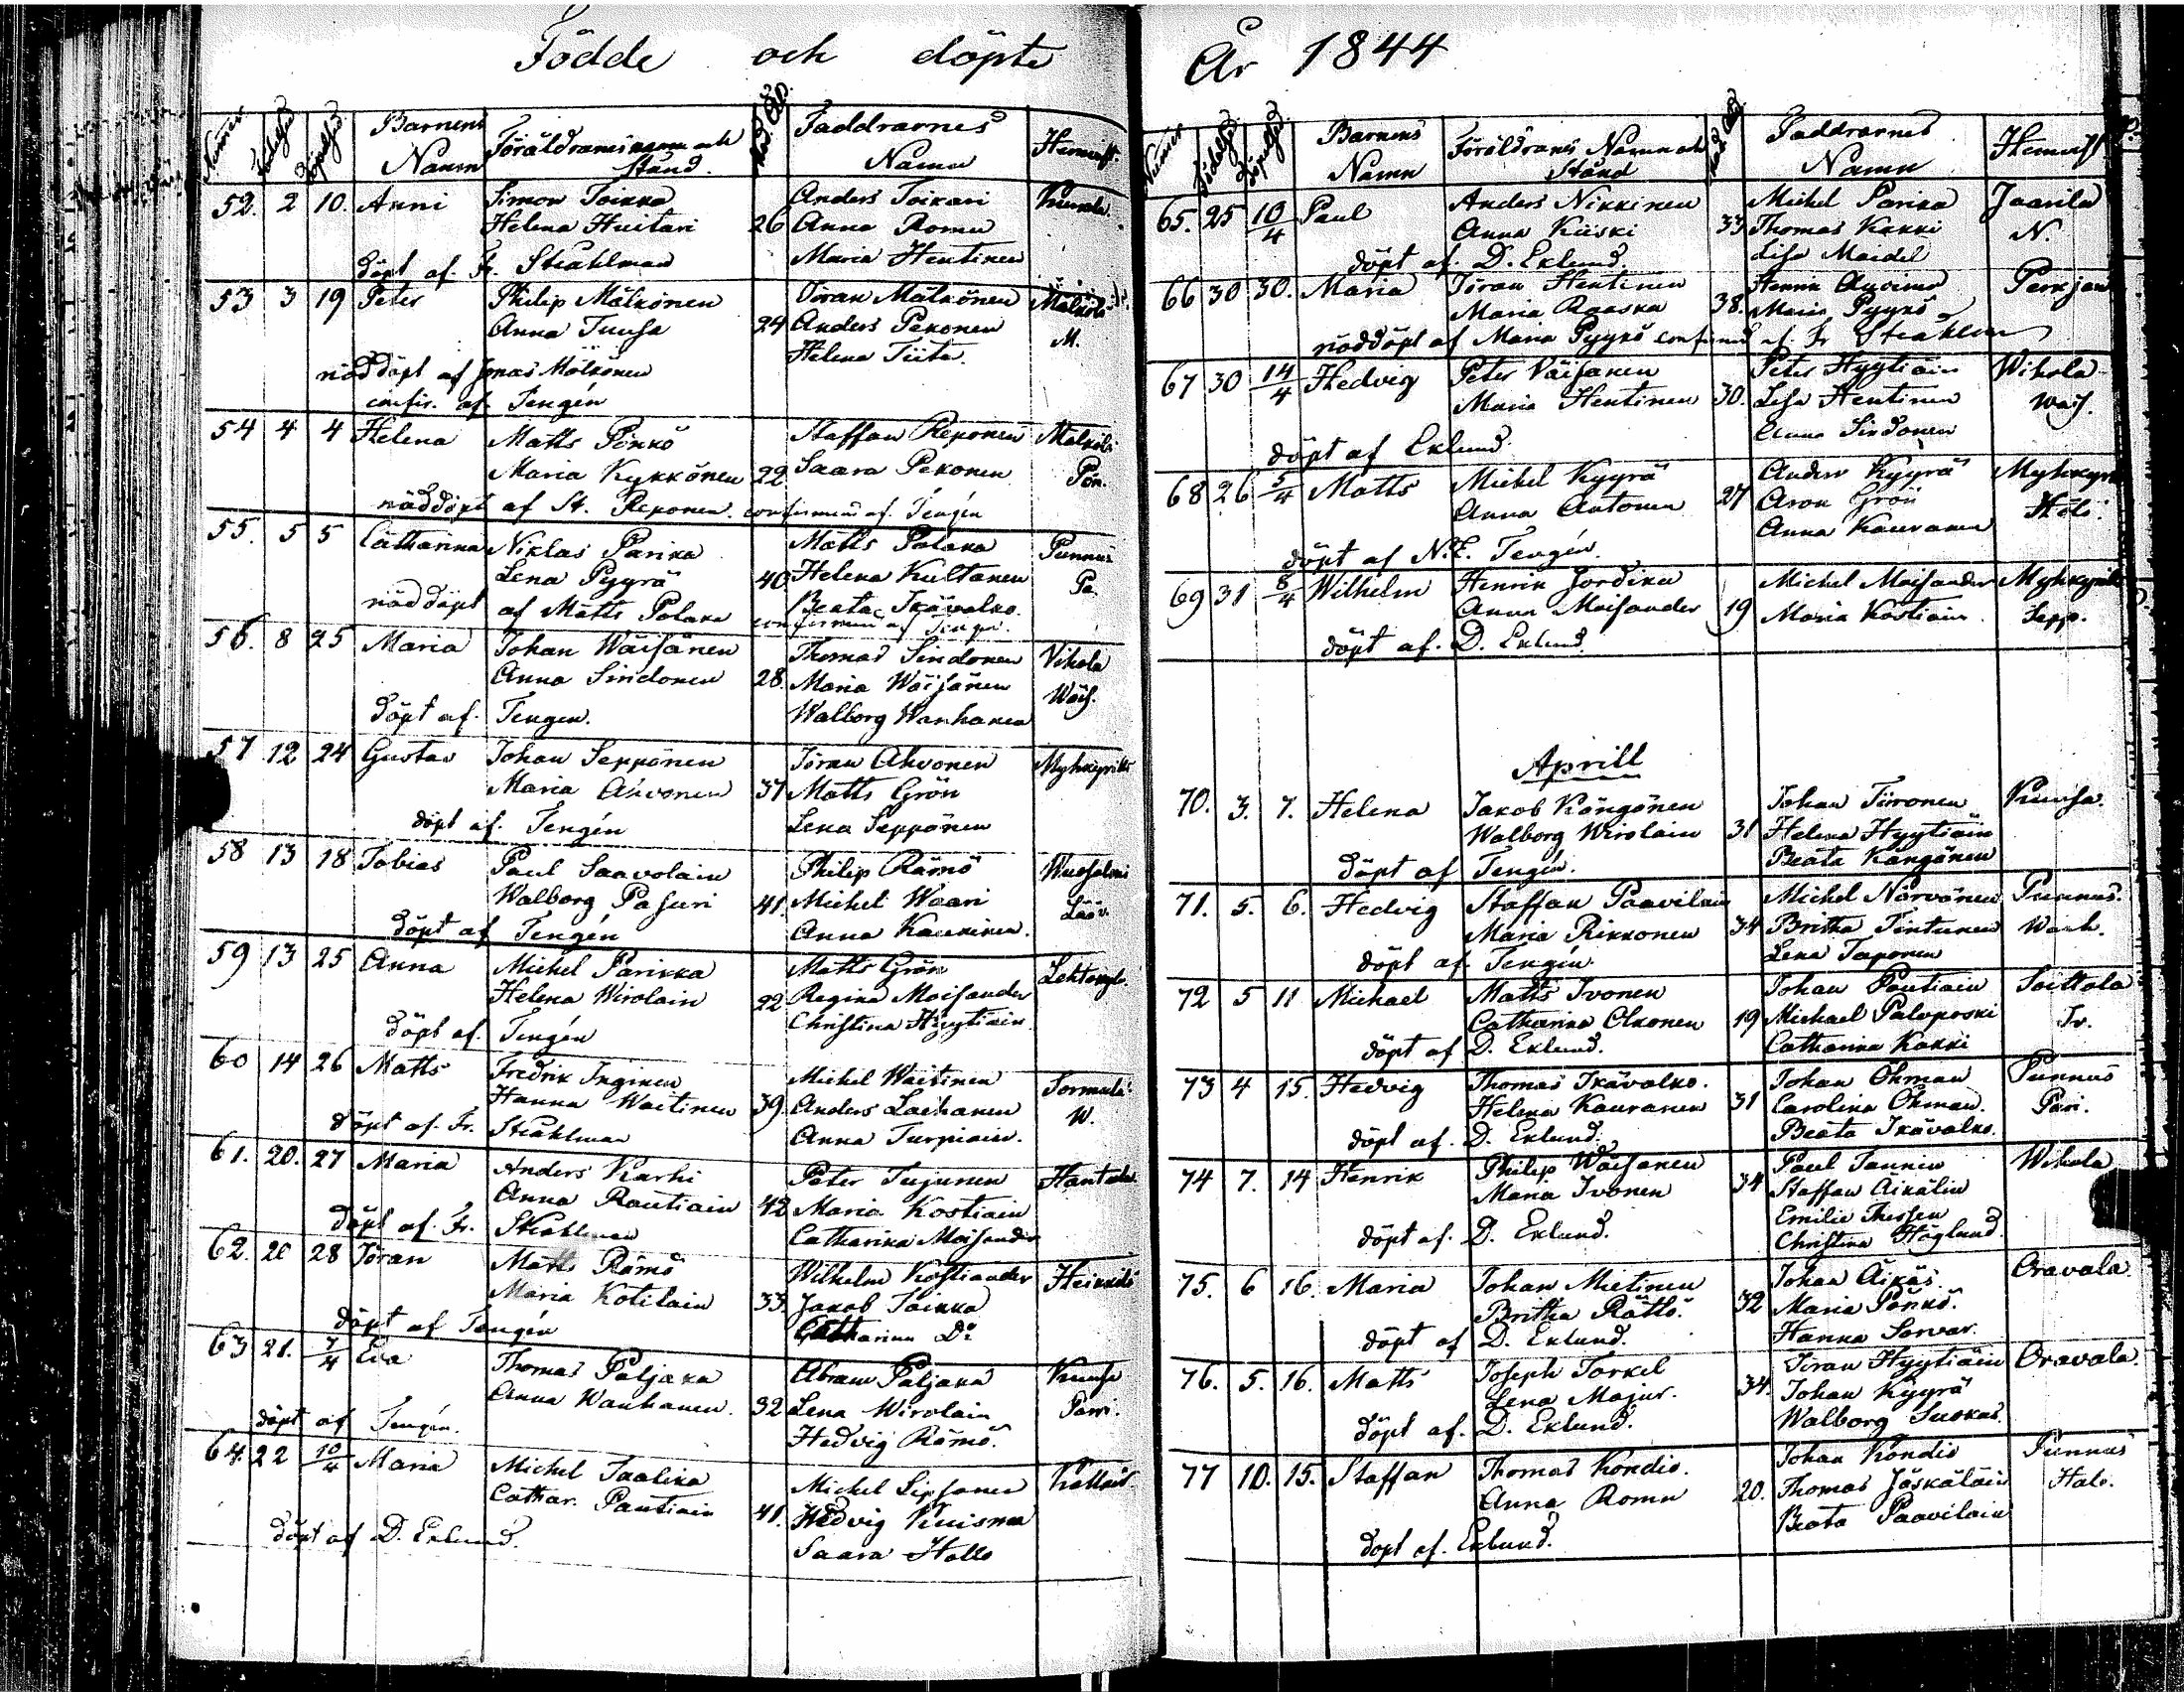 Födde och döpte
Numer Födelsed Döpelsed Barnens Namn Föräldrarnes namn och Stånd. Mod. Åld. Faddrarnes Namn Hemvist.
52. 2 10. Anni Simon Toikka Anders Toikari Kuusala.
Helena Huitari 26 Anna Romu
döpt af Fr. Strahlman Maria Hentinen
53 3 19 Peter Philip Mälkönen Jöran Mälkönen Mälkölä
Anna Tuusa 24 Anders Pekonen M.
Helena Tiita.
nöddöpt af Jonas Mälkönen
confir. af Tengén
54 4 4 Helena Matts Pönkö Staffan Reponen Mälkölä
Maria Kykkönen 22 Saara Pekonen Pön.
nöddöpt af St. Reponen. confirmerad af Tengén
55. 5 5 Catharina Niklas Parika Matts Polaka Punnus
Lena Pyyrä 40 Helena Kultanen Pa.
nöddöpt af Matts Polaka Beata Ikävalko.
confirmerad af Tengén.
56. 8 25 Maria Johan Wäisänen Thomas Sindonen Vihola
Anna Sindonen 28. Maria Wäisänen Wäis.
döpt af Tengén. Walborg Wanhanen
57 12 24 Gustav Johan Seppönen Jöran Ahvonen Myhkyrilä
Maria Ahvonen 37 Matts Grön
döpt af Tengén Lena Seppönen
58 13 18 Tobias Paul Saavolain Philip Rämö Wuosalmi
Walborg Pasuri 41. Michel Waari Lääv.
döpt af Tengén Anna Kaukinen.
59 13 25 Anna Michel Parikka Matts Grön Lehtokylä.
Helena Wirolain 22 Regina Moisander
döpt af Tengén Christina Hyytiäin
60 14 26 Matts Fredrik Inginen Michel Waitinen Sormula
Hanna Waitinen 39. Anders Laihanen W.
döpt af Fr. Strahlman Anna Turpiain.
61. 20. 27 Maria Anders Karhi Peter Tujunen Hantula.
Anna Rautiain 42 Maria Kostiain
döpt af Fr. Strahlman Catharina Moisander
62. 20 28 Jöran Matts Rämö Wilhelm Kostiander Heikkilä
Maria Kotilain 33. Jakob Toikka
döpt af Tengén Catharina D:o
63 21. 7/4 Eva Thomas Paljaka Abram Paljaka Kuusa
Anna Wanhanen. 32 Lena Wirolain Parri.
döpt af Tengén. Hedvig Rämö.
64. 22 10/4 Maria Michel Taalika Michel Sipponen
Cathar. Pautiain 41. Hedvig Kuisma
döpt af D. Eklund. Saara Hallo
År 1844
Numer Födelsed Döpelsed Barnens Namn Föräldrars Namn och Stånd Mod. Åld. Faddrarnes Namn Hemvist
65. 25 10/4 Paul Anders Nikkinen Michel Parika Jaarila
Anna Kiiski 33 Thomas Kakki N.
döpt af D. Eklund. Lisa Maidel
66 30 30. Maria Jöran Hentinen Henrik Auvinen Perkjärv
Maria Raaska 38. Maria Pyykö
nöddöpt af Maria Pyykö confirmed af Fr Strahlman
67 30 14/4 Hedvig Peter Väisänen Peter Hyytiäin Wihola
Maria Hentinen 30. Lisa Hentinen Wäis.
döpt af Eklund. Anna Sindonen
68 26 5/4 Matts Michel Kyyrä Anders Kyyrä Myhkyr
Anna Autonen 27 Aron Grön Hölö.
döpt af N.E. Tengén. Anna Kauranen
69 31 8/4 Wilhelm Henrik Jordiku Michel Moisander Myhkyrilä
Anna Moisander 19 Maria Kostiain Sepp.
döpt af D. Eklund.
Aprill
70. 3. 7. Helena Jakob Kängönen Johan Tiironen Kuusa.
Walborg Wirolain 31 Helena Hyytiäin
döpt af Tengén. Beata Kängönen
71. 5. 6. Hedvig Staffan Paavilain Michel Närvänen Punnus.
Maria Rikkonen 34 Britha Tintunen Wanh.
döpt af Tengén Lena Taponen
72 5 11 Michael Matts Ivonen Johan Pautiain Soittola
Catharina Olkonen 19 Michael Palvposki Iv.
döpt af D. Eklund. Catharina Kakki
73 4 15. Hedvig Thomas Ikävalko. Johan Öhman Punnus
Helena Kauranen 31 Carolina Öhman. Pari.
döpt af D. Eklund. Beata Ikävalko.
74 7. 14 Henrik Philip Wäisänen Paul Tannin Wihola
Maria Ivonen 34 Staffan Äikälin
Emilie Thessen
döpt af D. Eklund. Christina Höglund
75. 6 16. Maria Johan Mietinen Johan Äikäs. Oravala.
Britha Rättö. 32 Maria Pönkö.
döpt af D. Eklund. Hanna Sorvar.
76. 5. 16. Matts Joseph Torkel Jöran Hyytiäin Oravala.
Lena Majur. 34. Johan Kyyrä
döpt af D. Eklund. Walborg Suskas.
77 10. 15. Staffan Thomas Kondio. Johan Kondio Punnus
Anna Romu 20. Thomas Jäskäläin Halo.
Beata Paavilain
döpt af Eklund.